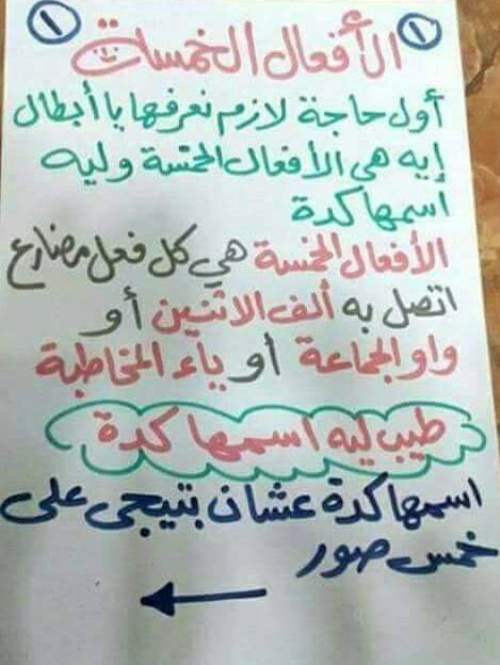 ١ الأفعال الخمسة ١
أول حاجة لازم نعرفها يا أبطال
إيه هي الأفعال الخمسة وليه
اسمها كدة
الأفعال الخمسة هي كل فعل مضارع
اتصل به ألف الاثنين أو
واو الجماعة أو ياء المخاطبة
طيب ليه اسمها كدة
اسمها كدة عشان بتيجى على
خمس صور